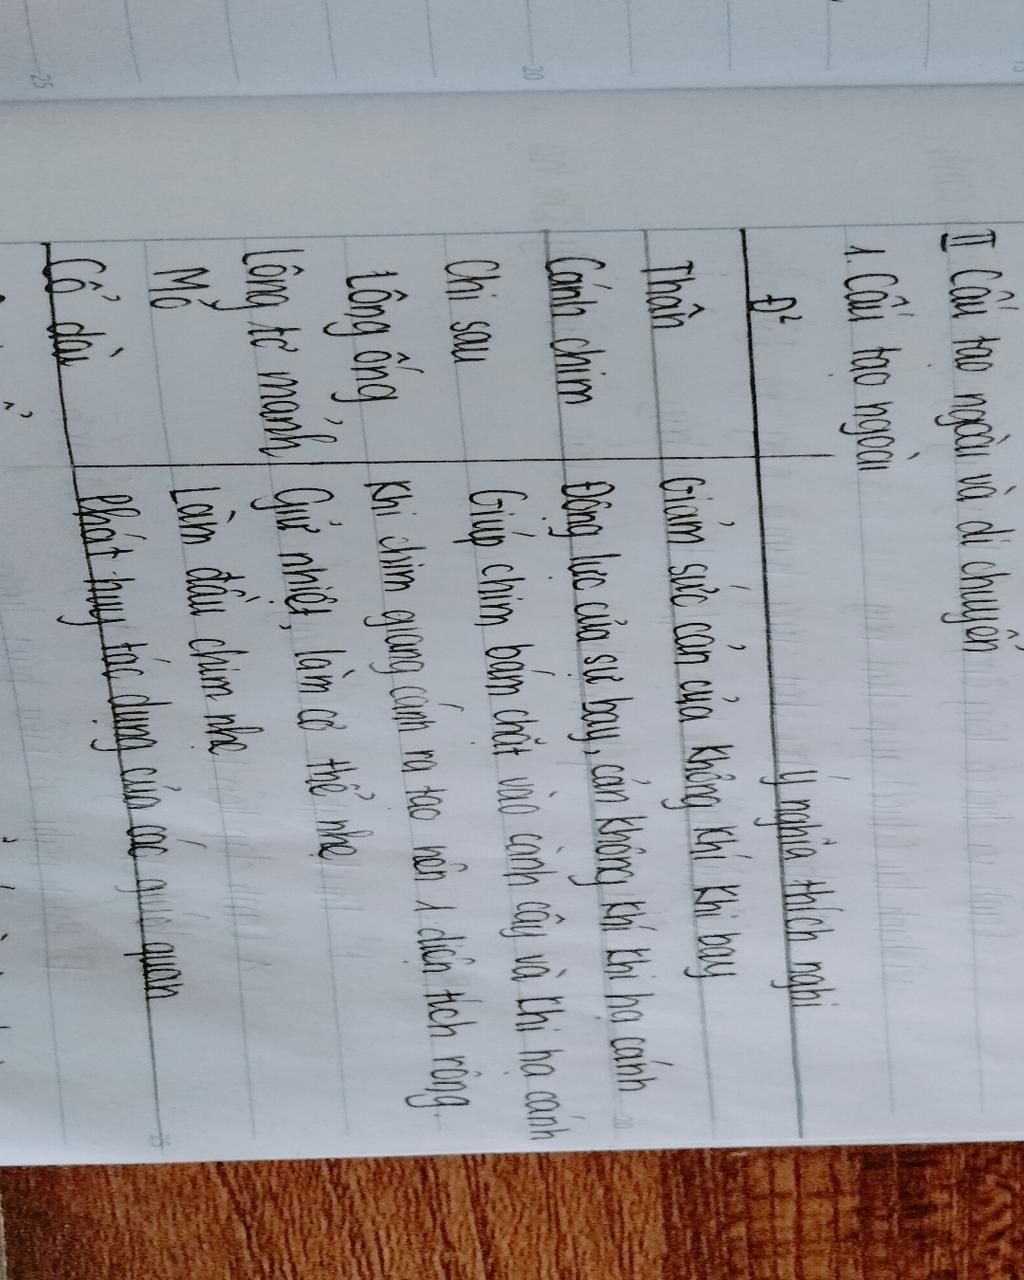 II Cấu tạo ngoài và di chuyển
1. Cấu tạo ngoài
Đ² Ý nghĩa thích nghi
Thân Giảm sức cản của không khí khi bay
Cánh chim Động lực của sự bay, cản không khí khi hạ cánh
Chi sau Giúp chim bám chặt vào cành cây và khi hạ cánh
Lông ống Khi chim giang cánh ra tạo nên 1 diện tích rộng.
Lông tơ mảnh Giữ nhiệt, làm cơ thể nhẹ
Mỏ Làm đầu chim nhẹ
Cổ dài Phát huy tác dụng của các quan